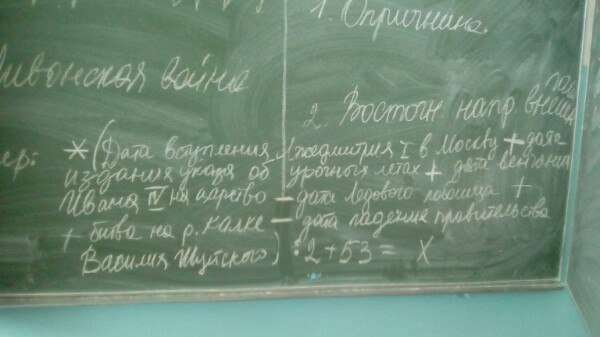 1. Опричнина.
Ливонская война
2. Восточн. напр. внешн
пол
ер: * (Дата вступления Лжедмитрия I в Москву + дата
издания указа об урочных летах + дата венчания
Ивана IV на царство = дата Ледового побоища +
+ битва на р. Калке = дата падения правительства
Василия Шуйского) : 2 + 53 = X